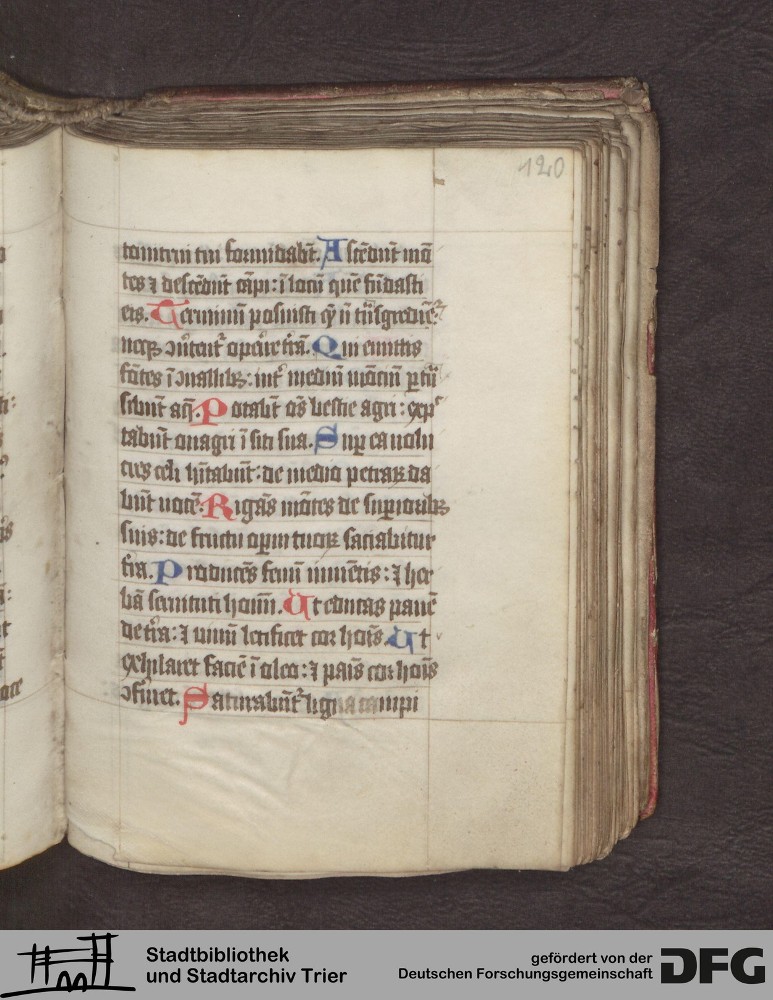 120
tonitrui tui formidabūt. Ascēdūt mō
tes ⁊ descēdūt cāpi: ī locū quē fūdasti
eis. Terminū posuisti quē nō trāsgrediēt᷑:
neqꝫ ꝯuertēt᷑ operire trā. Qui emittis
fōtes ī ꝯuallibꝫ: int᷑ mediū mōciū ꝑtrā
sibūt aq̄. Potabūt oēs bestie agri: exp̄c
tabūt onagri ī siti sua. Suꝑ ea uolu
cres celi hītabūt: de medio petraꝝ da
būt uocē. Rigās mōtes de suꝑioribꝫ
suis: de fructu operū tuoꝝ saciabitur
tr̄a. Producēs fenū iumētis: ⁊ her
bā seruituti hoīm. Ut educas panē
de tr̄a: ⁊ uinū letificet cor hoīs. Ut
exhilaret faciē ī oleo: ⁊ panis cor hoīs
ꝯfirmet. Saturabūt᷑ ligna campi
Stadtbibliothek
und Stadtarchiv Trier
gefördert von der
Deutschen Forschungsgemeinschaft
DFG